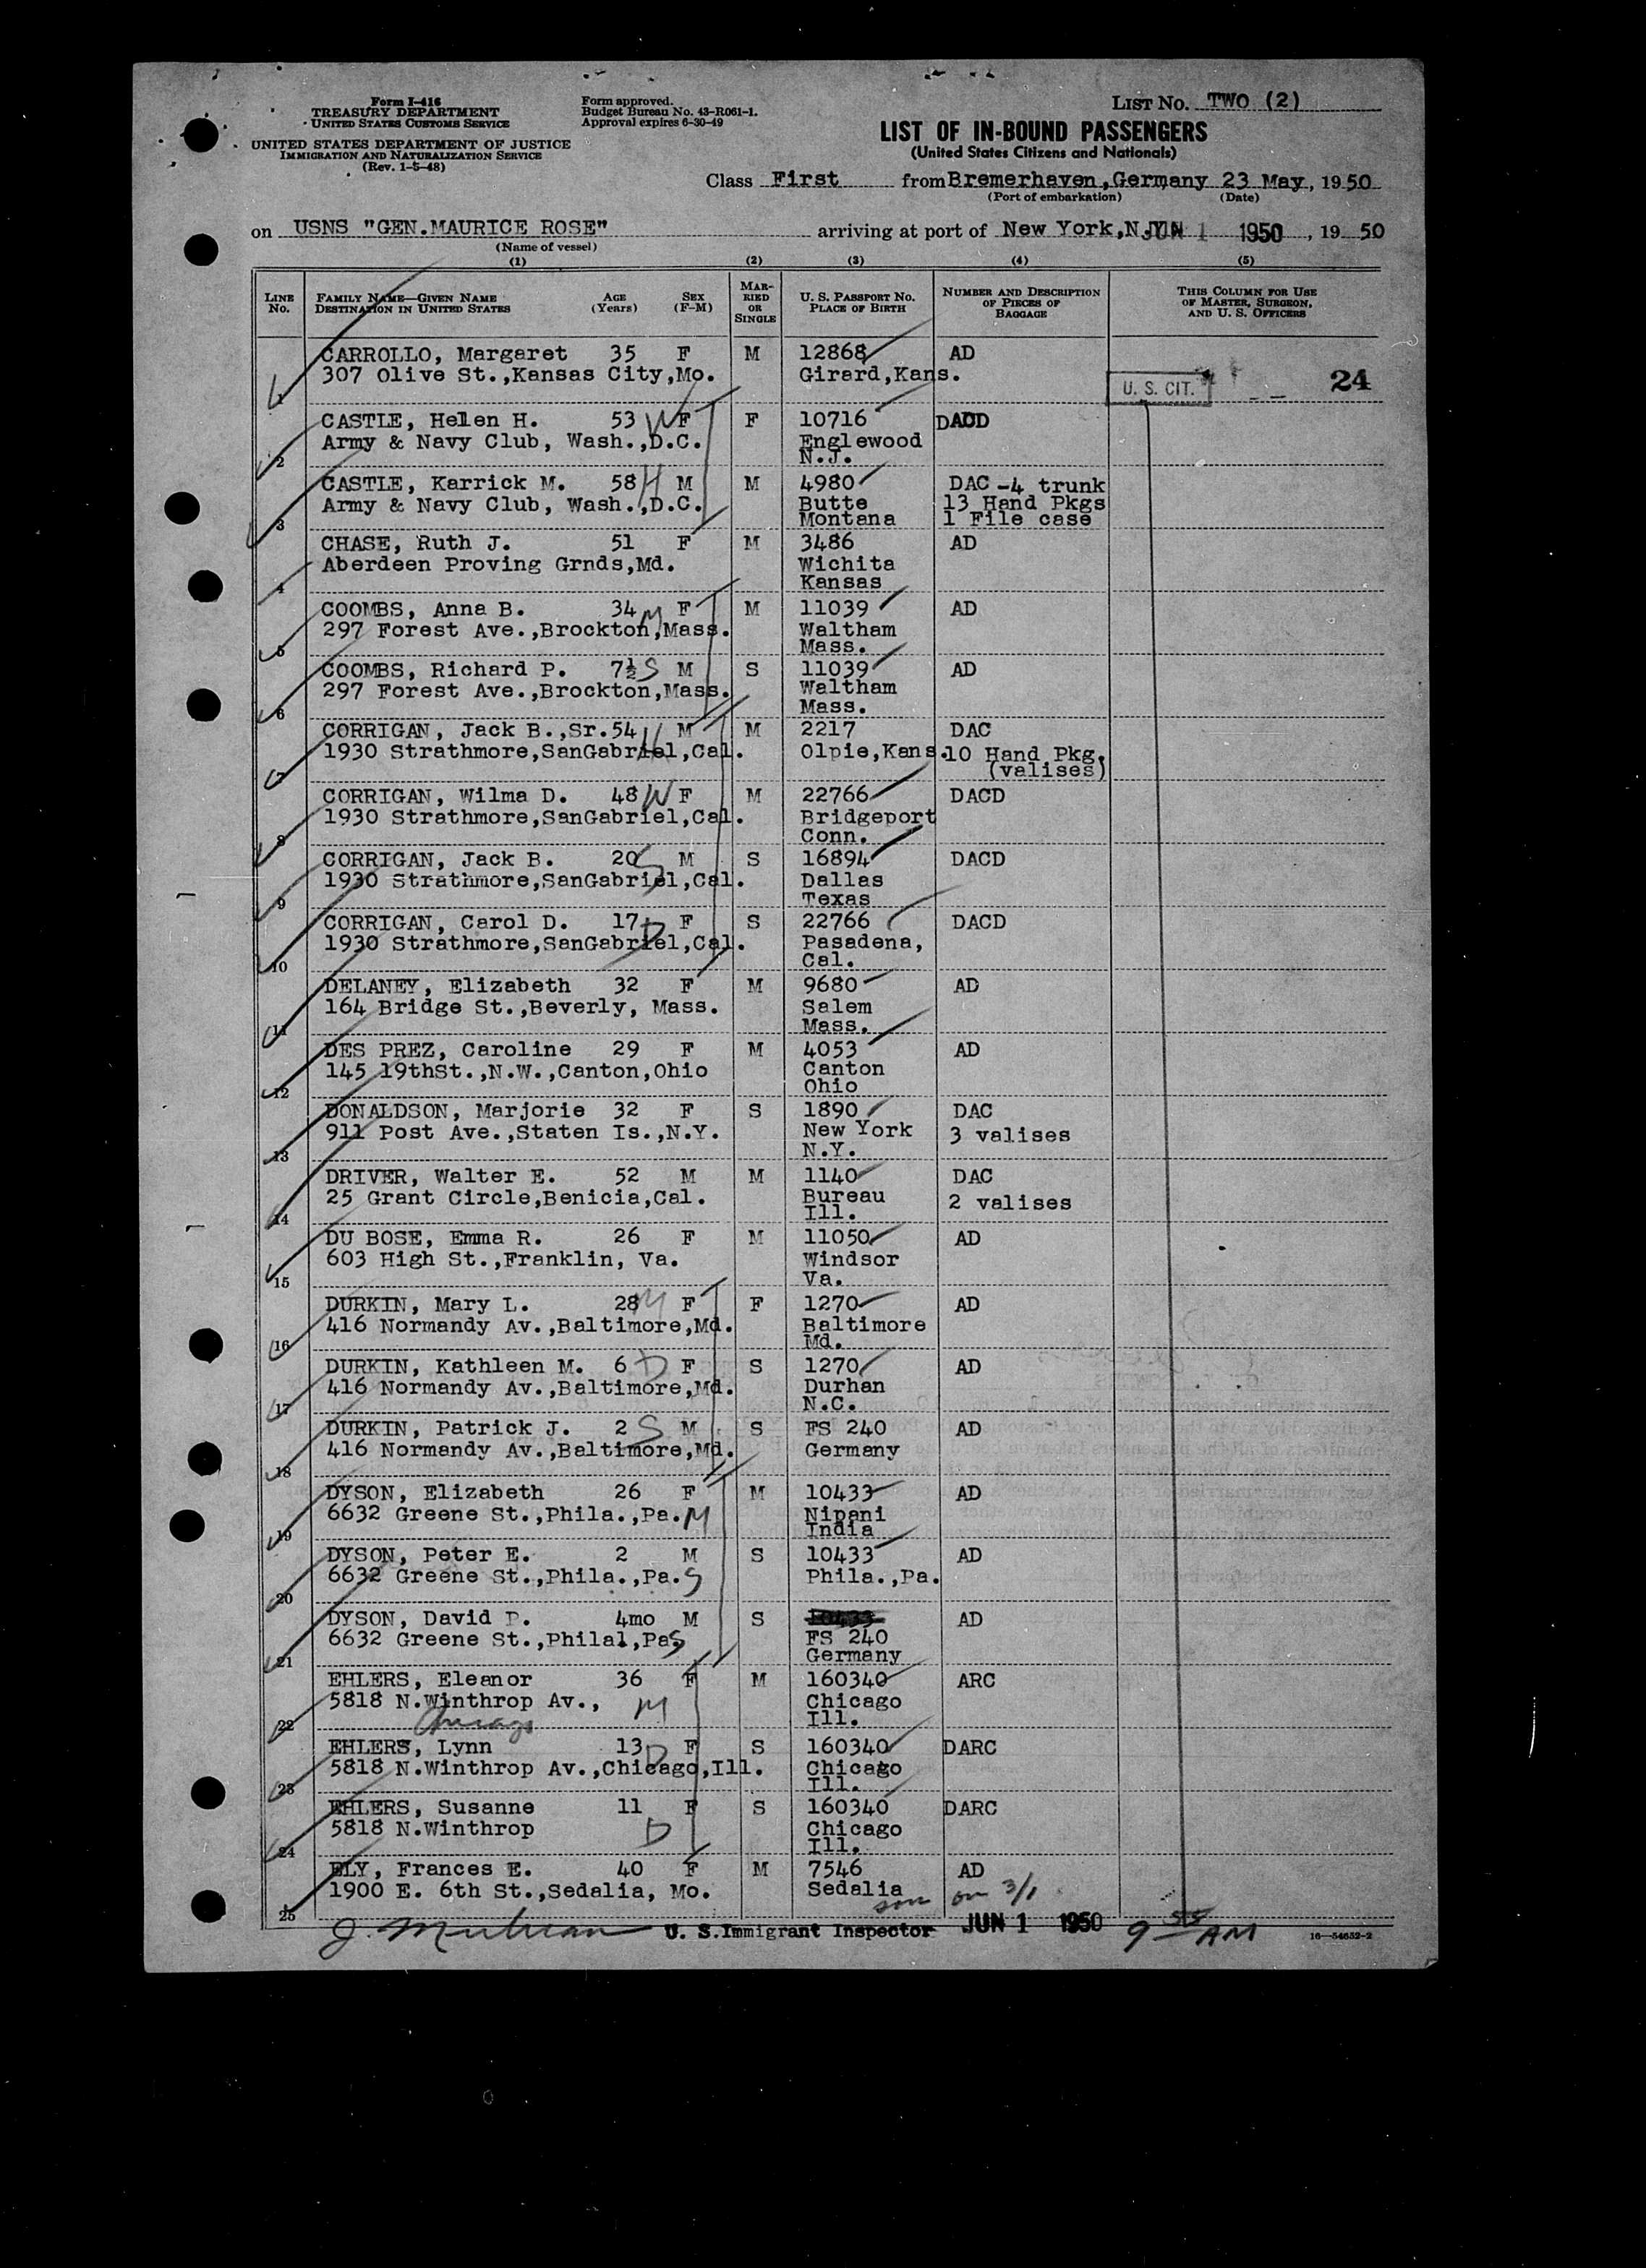 Form I-416
TREASURY DEPARTMENT
UNITED STATES CUSTOMS SERVICE
UNITED STATES DEPARTMENT OF JUSTICE
IMMIGRATION AND NATURALIZATION SERVICE
(Rev. 1-5-48)
Form approved.
Budget Bureau No. 43-R061-1.
Approval expires 6-30-49
LIST NO. TWO (2)
LIST OF IN-BOUND PASSENGERS
(United States Citizens and Nationals)
Class First from Bremerhaven,Germany 23 May, 1950
(Port of embarkation) (Date)
on USNS "GEN.MAURICE ROSE" arriving at port of New York,N.Y. JUN 1 1950, 19 50
(Name of vessel)
(1) (2) (3) (4) (5)
LINE NO. FAMILY NAME—GIVEN NAME DESTINATION IN UNITED STATES AGE (Years) SEX (F-M) MARRIED OR SINGLE U. S. PASSPORT NO. PLACE OF BIRTH NUMBER AND DESCRIPTION OF PIECES OF BAGGAGE THIS COLUMN FOR USE OF MASTER, SURGEON, AND U. S. OFFICERS
CARROLLO, Margaret 35 F M 12868 AD
1 307 Olive St.,Kansas City,Mo. Girard,Kans. U. S. CIT. 24
CASTLE, Helen H. 53 W F F 10716 DACD
2 Army & Navy Club, Wash.,D.C. Englewood
N.J.
CASTLE, Karrick M. 58 H M M 4980 DAC -4 trunk
3 Army & Navy Club, Wash.,D.C. Butte 13 Hand Pkgs
Montana 1 File case
CHASE, Ruth J. 51 F M 3486 AD
4 Aberdeen Proving Grnds,Md. Wichita
Kansas
COOMBS, Anna B. 34 M F M 11039 AD
5 297 Forest Ave.,Brockton,Mass. Waltham
Mass.
COOMBS, Richard P. 7½ S M S 11039 AD
6 297 Forest Ave.,Brockton,Mass. Waltham
Mass.
CORRIGAN, Jack B.,Sr. 54 H M M 2217 DAC
7 1930 Strathmore,SanGabriel,Cal. Olpie,Kans. 10 Hand Pkg.
(valises)
CORRIGAN, Wilma D. 48 W F M 22766 DACD
8 1930 Strathmore,SanGabriel,Cal. Bridgeport
Conn.
CORRIGAN, Jack B. 20 S M S 16894 DACD
9 1930 Strathmore,SanGabriel,Cal. Dallas
Texas
CORRIGAN, Carol D. 17 D F S 22766 DACD
10 1930 Strathmore,SanGabriel,Cal. Pasadena,
Cal.
DELANEY, Elizabeth 32 F M 9680 AD
11 164 Bridge St.,Beverly, Mass. Salem
Mass.
DES PREZ, Caroline 29 F M 4053 AD
12 145 19thSt.,N.W.,Canton,Ohio Canton
Ohio
DONALDSON, Marjorie 32 F S 1890 DAC
13 911 Post Ave.,Staten Is.,N.Y. New York 3 valises
N.Y.
DRIVER, Walter E. 52 M M 1140 DAC
14 25 Grant Circle,Benicia,Cal. Bureau 2 valises
Ill.
DU BOSE, Emma R. 26 F M 11050 AD
15 603 High St.,Franklin, Va. Windsor
Va.
DURKIN, Mary L. 28 M F F 1270 AD
16 416 Normandy Av.,Baltimore,Md. Baltimore
Md.
DURKIN, Kathleen M. 6 D F S 1270 AD
17 416 Normandy Av.,Baltimore,Md. Durhan
N.C.
DURKIN, Patrick J. 2 S M S FS 240 AD
18 416 Normandy Av.,Baltimore,Md. Germany
DYSON, Elizabeth 26 F M 10433 AD
19 6632 Greene St.,Phila.,Pa. M Nipani
India
DYSON, Peter E. 2 M S 10433 AD
20 6632 Greene St.,Phila.,Pa. S Phila.,Pa.
DYSON, David P. 4mo M S 10433 AD
21 6632 Greene St.,Philal,Pa. S FS 240
Germany
EHLERS, Eleanor 36 F M 160340 ARC
22 5818 N.Winthrop Av., M Chicago
Chicago Ill.
EHLERS, Lynn 13 D F S 160340 DARC
23 5818 N.Winthrop Av.,Chicago,Ill. Chicago
Ill.
EHLERS, Susanne 11 F S 160340 DARC
24 5818 N.Winthrop D Chicago
Ill.
ELY, Frances E. 40 F M 7546 AD
25 1900 E. 6th St.,Sedalia, Mo. Sedalia son on 3/1
U. S. Immigrant Inspector JUN 1 1950 9 55 AM 16—54652-2